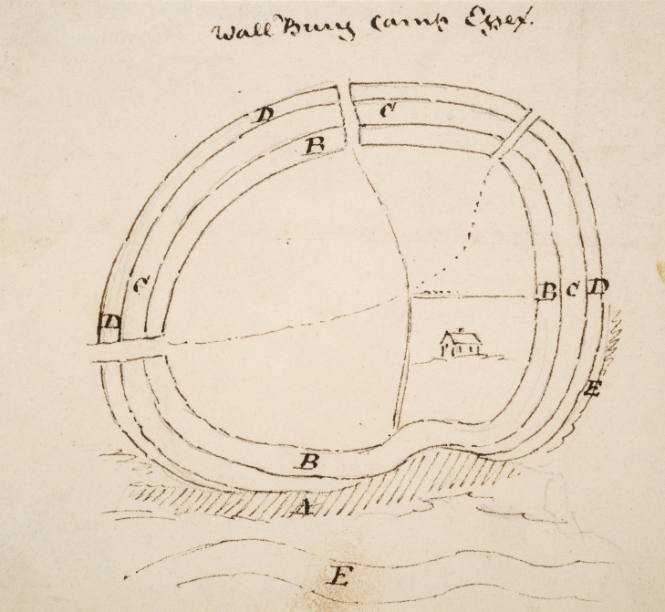 Wall Bury Camp Essex.
D C
B
C B C D
D
E
B
A
E